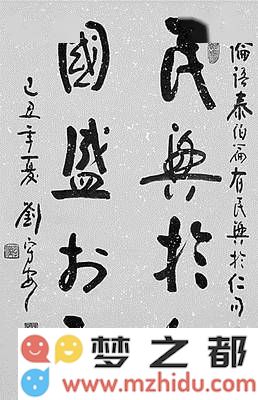 論語泰伯篇有民興於仁句
民興於
國盛於
己丑年夏 劉守安
梦之都
www.mzhidu.com